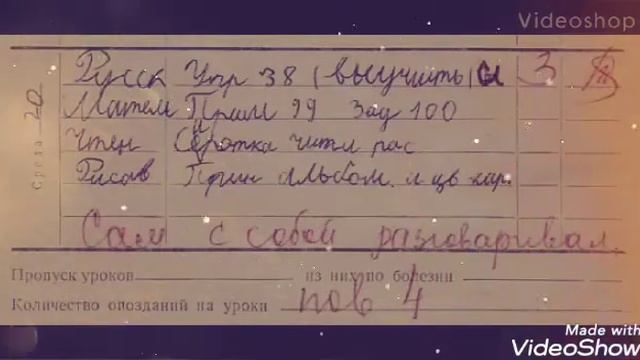 Videoshop
Русск Упр 38 (выучить) и 3
Матем Прим 99 Зад 100
Чтен Сиротка читл рас
Рисов Прин альбом. и цв кар.
Среда 20
Сам с собой разговаривал.
Пропуск уроков из них по болезни
Количество опозданий на уроки пов 4
Made with
VideoShow